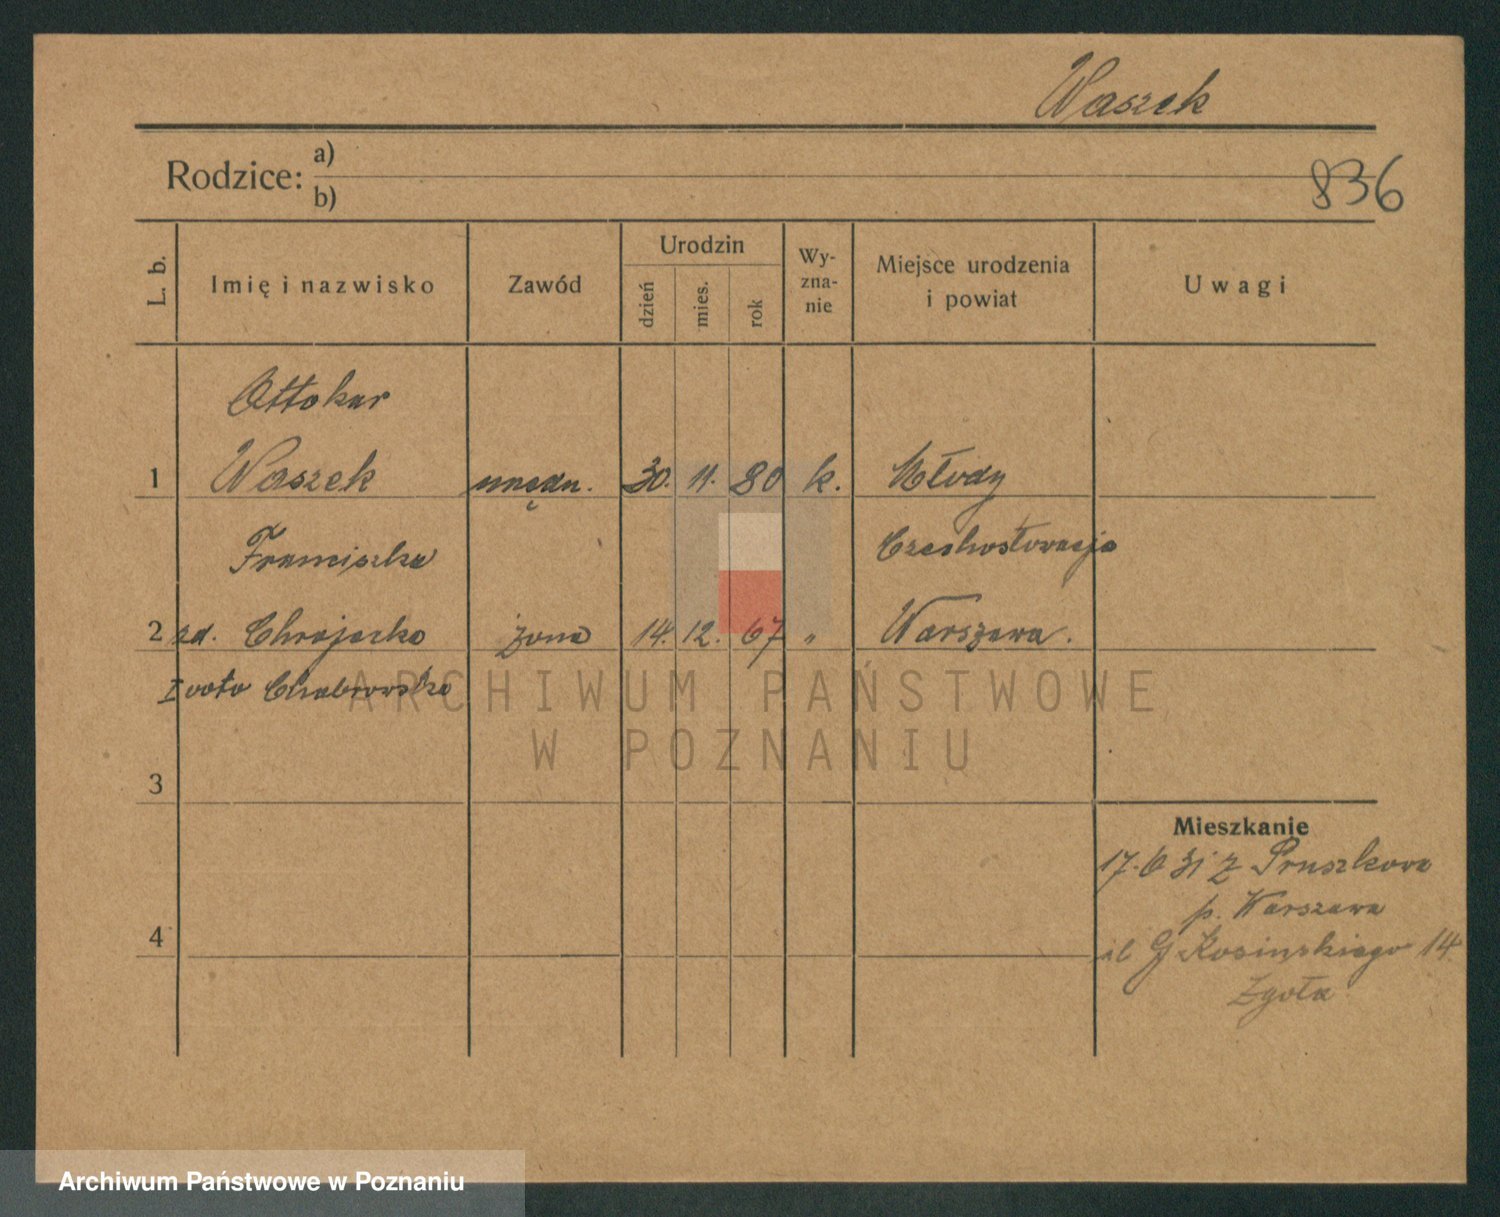 Waszek
Rodzice: a)
b)
836
L. b.
Imię i nazwisko
Zawód
Urodzin
dzień
mies.
rok
Wy-
zna-
nie
Miejsce urodzenia
i powiat
Uwagi
Ottokar
1 Waszek urzędn. 30. 11. 80 k. Młody
Franciszka Czechosłowacja
2 zd. Chrajaszko żona 14. 12. 67 " Warszawa.
I voto Chabrowska
3
4
Mieszkanie
17.6 31 z Pruszkowa
p. Warszawa
ul G Kosińskiego 14
Zgoła
ARCHIWUM PAŃSTWOWE
W POZNANIU
Archiwum Państwowe w Poznaniu